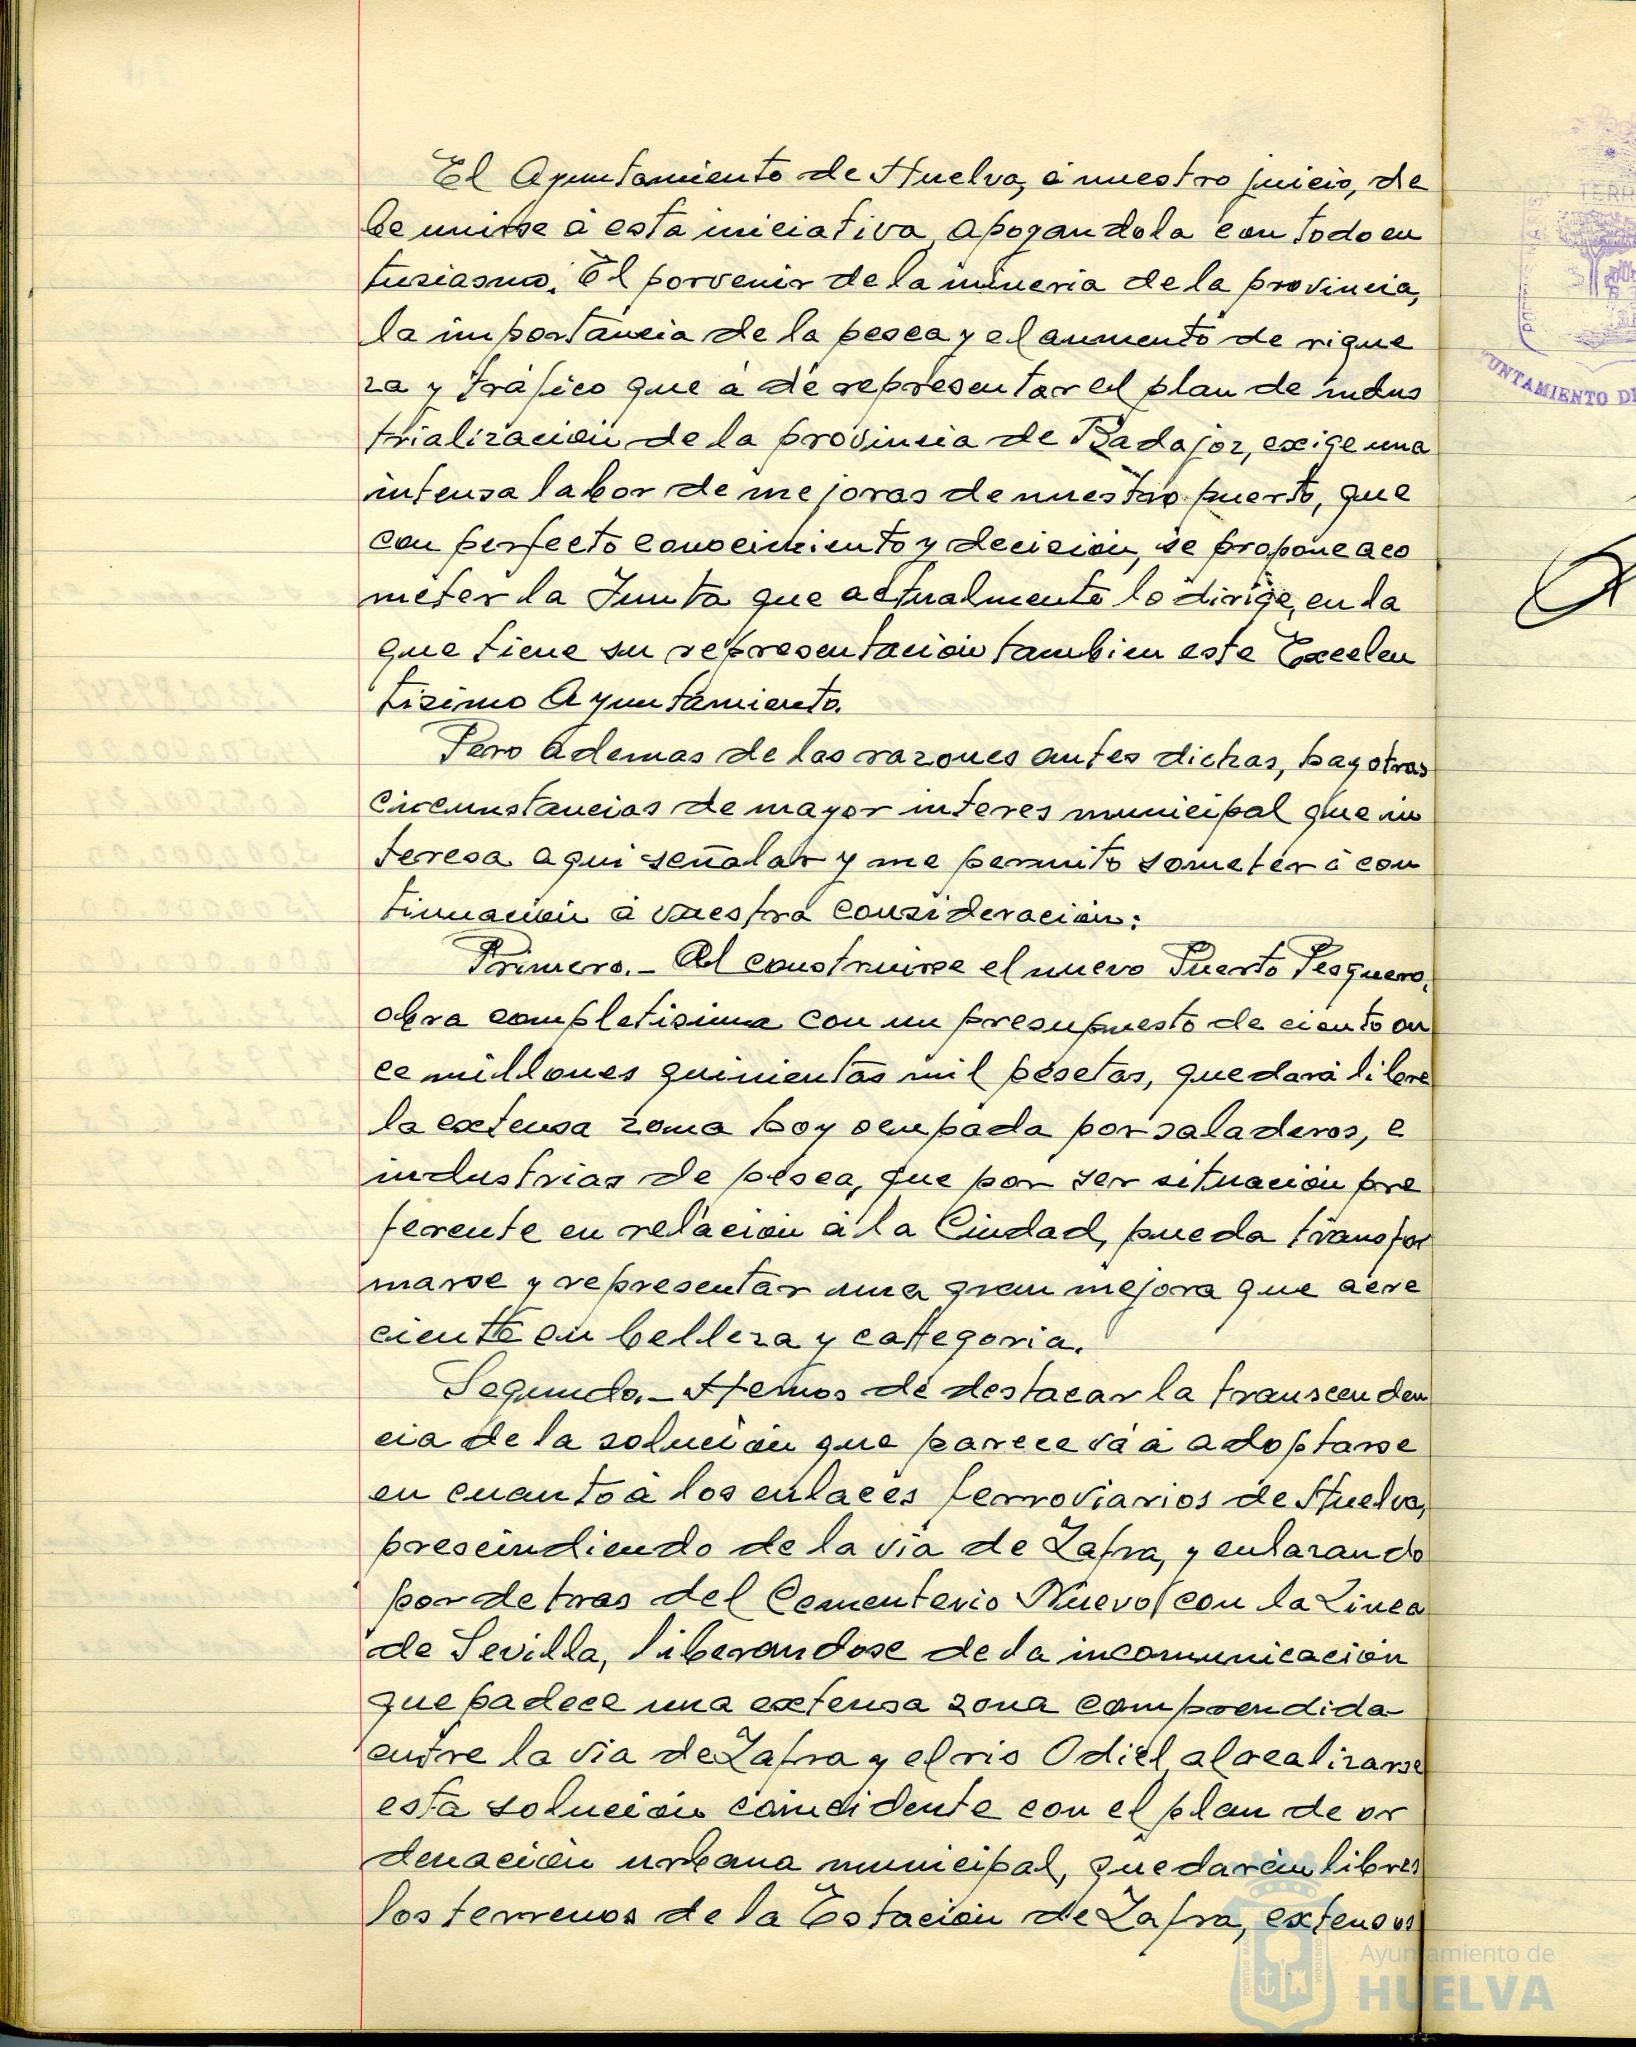 El Ayuntamiento de Huelva, á nuestro juicio, de
be unirse á esta iniciativa, apoyandola con todo en
tusiasmo. El porvenir de la mineria de la provincia,
la importancia de la pesca y el aumento de rique
za y tráfico que á de representar el plan de indus
trialización de la provincia de Badajoz, exige una
intensa labor de mejoras de nuestro puerto, que
con perfecto conocimiento y decición, se propone aco
meter la Junta que actualmente lo dirige, en la
que tiene su representación tambien este Excelen
tisimo Ayuntamiento.
Pero ademas de las razones antes dichas, hay otras
circunstancias de mayor interes municipal que in
teresa aqui señalar y me permito someter á con
tinuación á vuestra consideración:
Primero.- Al construirse el nuevo Puerto Pesquero,
obra completisima con un presupuesto de ciento on
ce millones quinientas mil pesetas, quedará libre
la extensa zona hoy ocupada por saladeros, e
industrias de pesca, que por ser situación pre
ferente en relación á la Ciudad, pueda transfor
marse y representar una gran mejora que acre
ciente en belleza y cattegoria.
Segundo.- Hemos de destacar la transcenden
cia de la solución que parece vá á adoptarse
en cuanto á los enlaces ferroviarios de Huelva,
prescindiendo de la via de Zafra, y enlazando
por detras del Cementerio Nuevo con la Linea
de Sevilla, liberandose de la incomunicación
que padece una extensa zona comprendida
entre la via de Zafra y el rio Odiel, al realizarse
esta solución coincidente con el plan de or
denación urbana municipal, quedarán libres
los terrenos de la Estación de Zafra, extensos
TERR
UNTAMIENTO DE
Ayuntamiento de
HUELVA